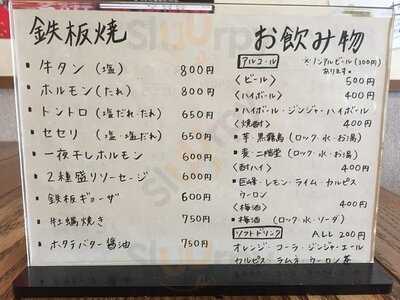 鉄板焼
・牛タン(塩) 800円
・ホルモン(たれ) 800円
・トントロ(塩だれ・たれ) 650円
・セセリ(塩・塩だれ) 650円
・一夜干しホルモン 600円
・2種盛りソーセージ 600円
・鉄板ギョーザ 600円
・牡蠣焼き 750円
・ホタテバター醤油 750円
お飲み物
アルコール ※ノンアルビール(300円)あります。
〈ビール〉 500円
〈ハイボール〉 400円
・ハイボール・ジンジャーハイボール
〈焼酎〉 400円
・芋・黒霧島(ロック・水・お湯)
・麦・二階堂(ロック・水・お湯)
〈酎ハイ〉 400円
・巨峰・レモン・ライム・カルピス
ウーロン
〈梅酒〉 400円
・梅酒(ロック・水・ソーダ)
ソフトドリンク ALL 200円
オレンジ・コーラ・ジンジャーエール
カルピス・ラムネ・ウーロン茶